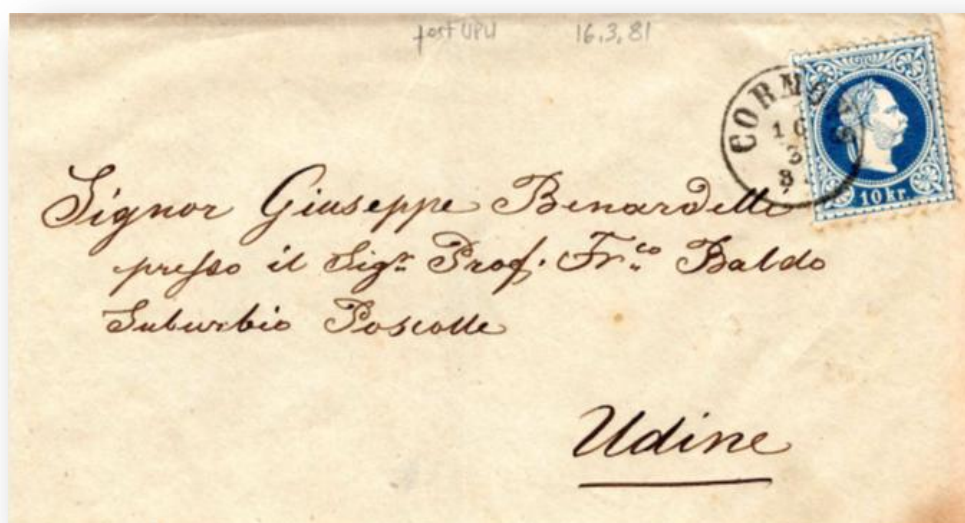 post UPU 16.3.81
CORMONS
16
3
81
10 kr.
Signor Giuseppe Benardelli
presso il Sigr. Prof. Fr.co Baldo
Suburbio Poscolle
Udine